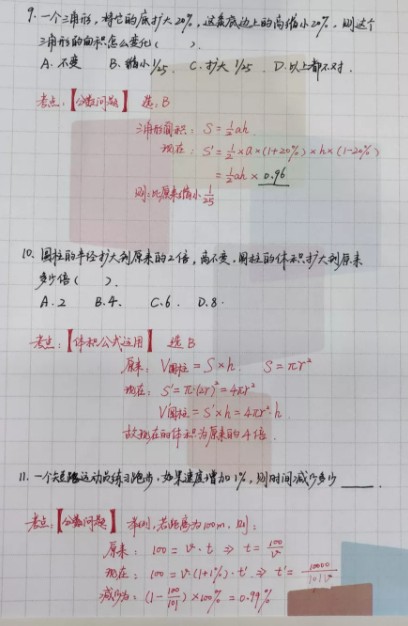 9. 一个三角形,将它的底扩大20%,这条底边上的高缩小20%,则这个
三角形的面积怎么变化( ).
A. 不变 B. 缩小1/25. C. 扩大1/25 . D. 以上都不对.
考点:【分数问题】 选. B
三角形面积: S = ½ah.
现在: S' = ½×a×(1+20%)×h×(1-20%)
= ½ah × 0.96
则:比原来缩小 1/25
10. 圆柱的半径扩大到原来的2倍,高不变,圆柱的体积扩大到原来
多少倍( ).
A. 2 B. 4. C. 6. D. 8.
考点:【体积公式运用】 选 B
原来: V圆柱 = S×h. S = πr²
现在: S' = π·(2r)² = 4πr²
V圆柱 = S'×h = 4πr²·h.
故现在的体积为原来的4倍.
11. 一个短跑运动员练习跑步,如果速度增加1%,则时间减少多少 ____.
考点:【分数问题】 举例,若距离为100m,则:
原来: 100 = v·t ⇒ t = 100/v
现在: 100 = v·(1+1%)·t' ⇒ t' = 10000/101v
减少为: (1 - 100/101)×100% = 0.99%